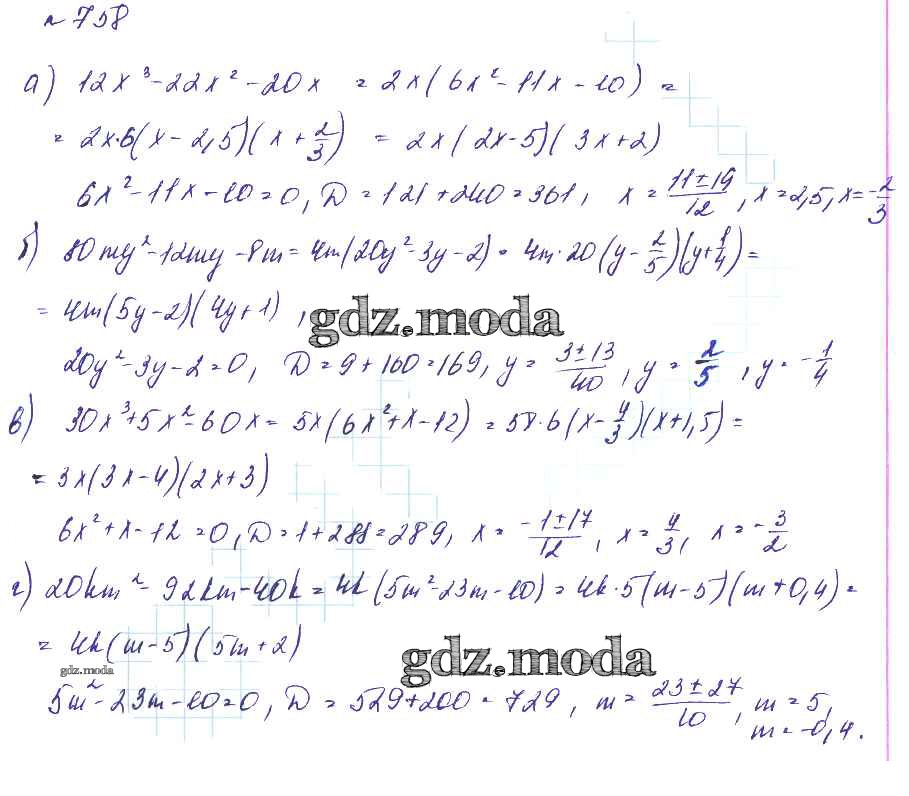 № 758
а) 12x³ - 22x² - 20x = 2x(6x² - 11x - 10) =
= 2x·6(x - 2,5)(x + 2/3) = 2x(2x-5)(3x+2)
6x² - 11x - 10 = 0, D = 121 + 240 = 361, x = (11±19)/12, x = 2,5, x = -2/3
б) 80my² - 12my - 8m = 4m(20y² - 3y - 2) = 4m·20(y - 2/5)(y + 1/4) =
= 4m(5y-2)(4y+1),
gdz.moda
20y² - 3y - 2 = 0, D = 9 + 160 = 169, y = (3±13)/40, y = 2/5, y = -1/4
в) 30x³ + 5x² - 60x = 5x(6x² + x - 12) = 5x·6(x - 4/3)(x + 1,5) =
= 3x(3x-4)(2x+3)
6x² + x - 12 = 0, D = 1 + 288 = 289, x = (-1±17)/12, x = 4/3, x = -3/2
г) 20km² - 92km - 40k = 4k(5m² - 23m - 10) = 4k·5(m-5)(m+0,4) =
= 4k(m-5)(5m+2)
gdz.moda
gdz.moda
5m² - 23m - 10 = 0, D = 529 + 200 = 729, m = (23±27)/10, m = 5,
m = -0,4.